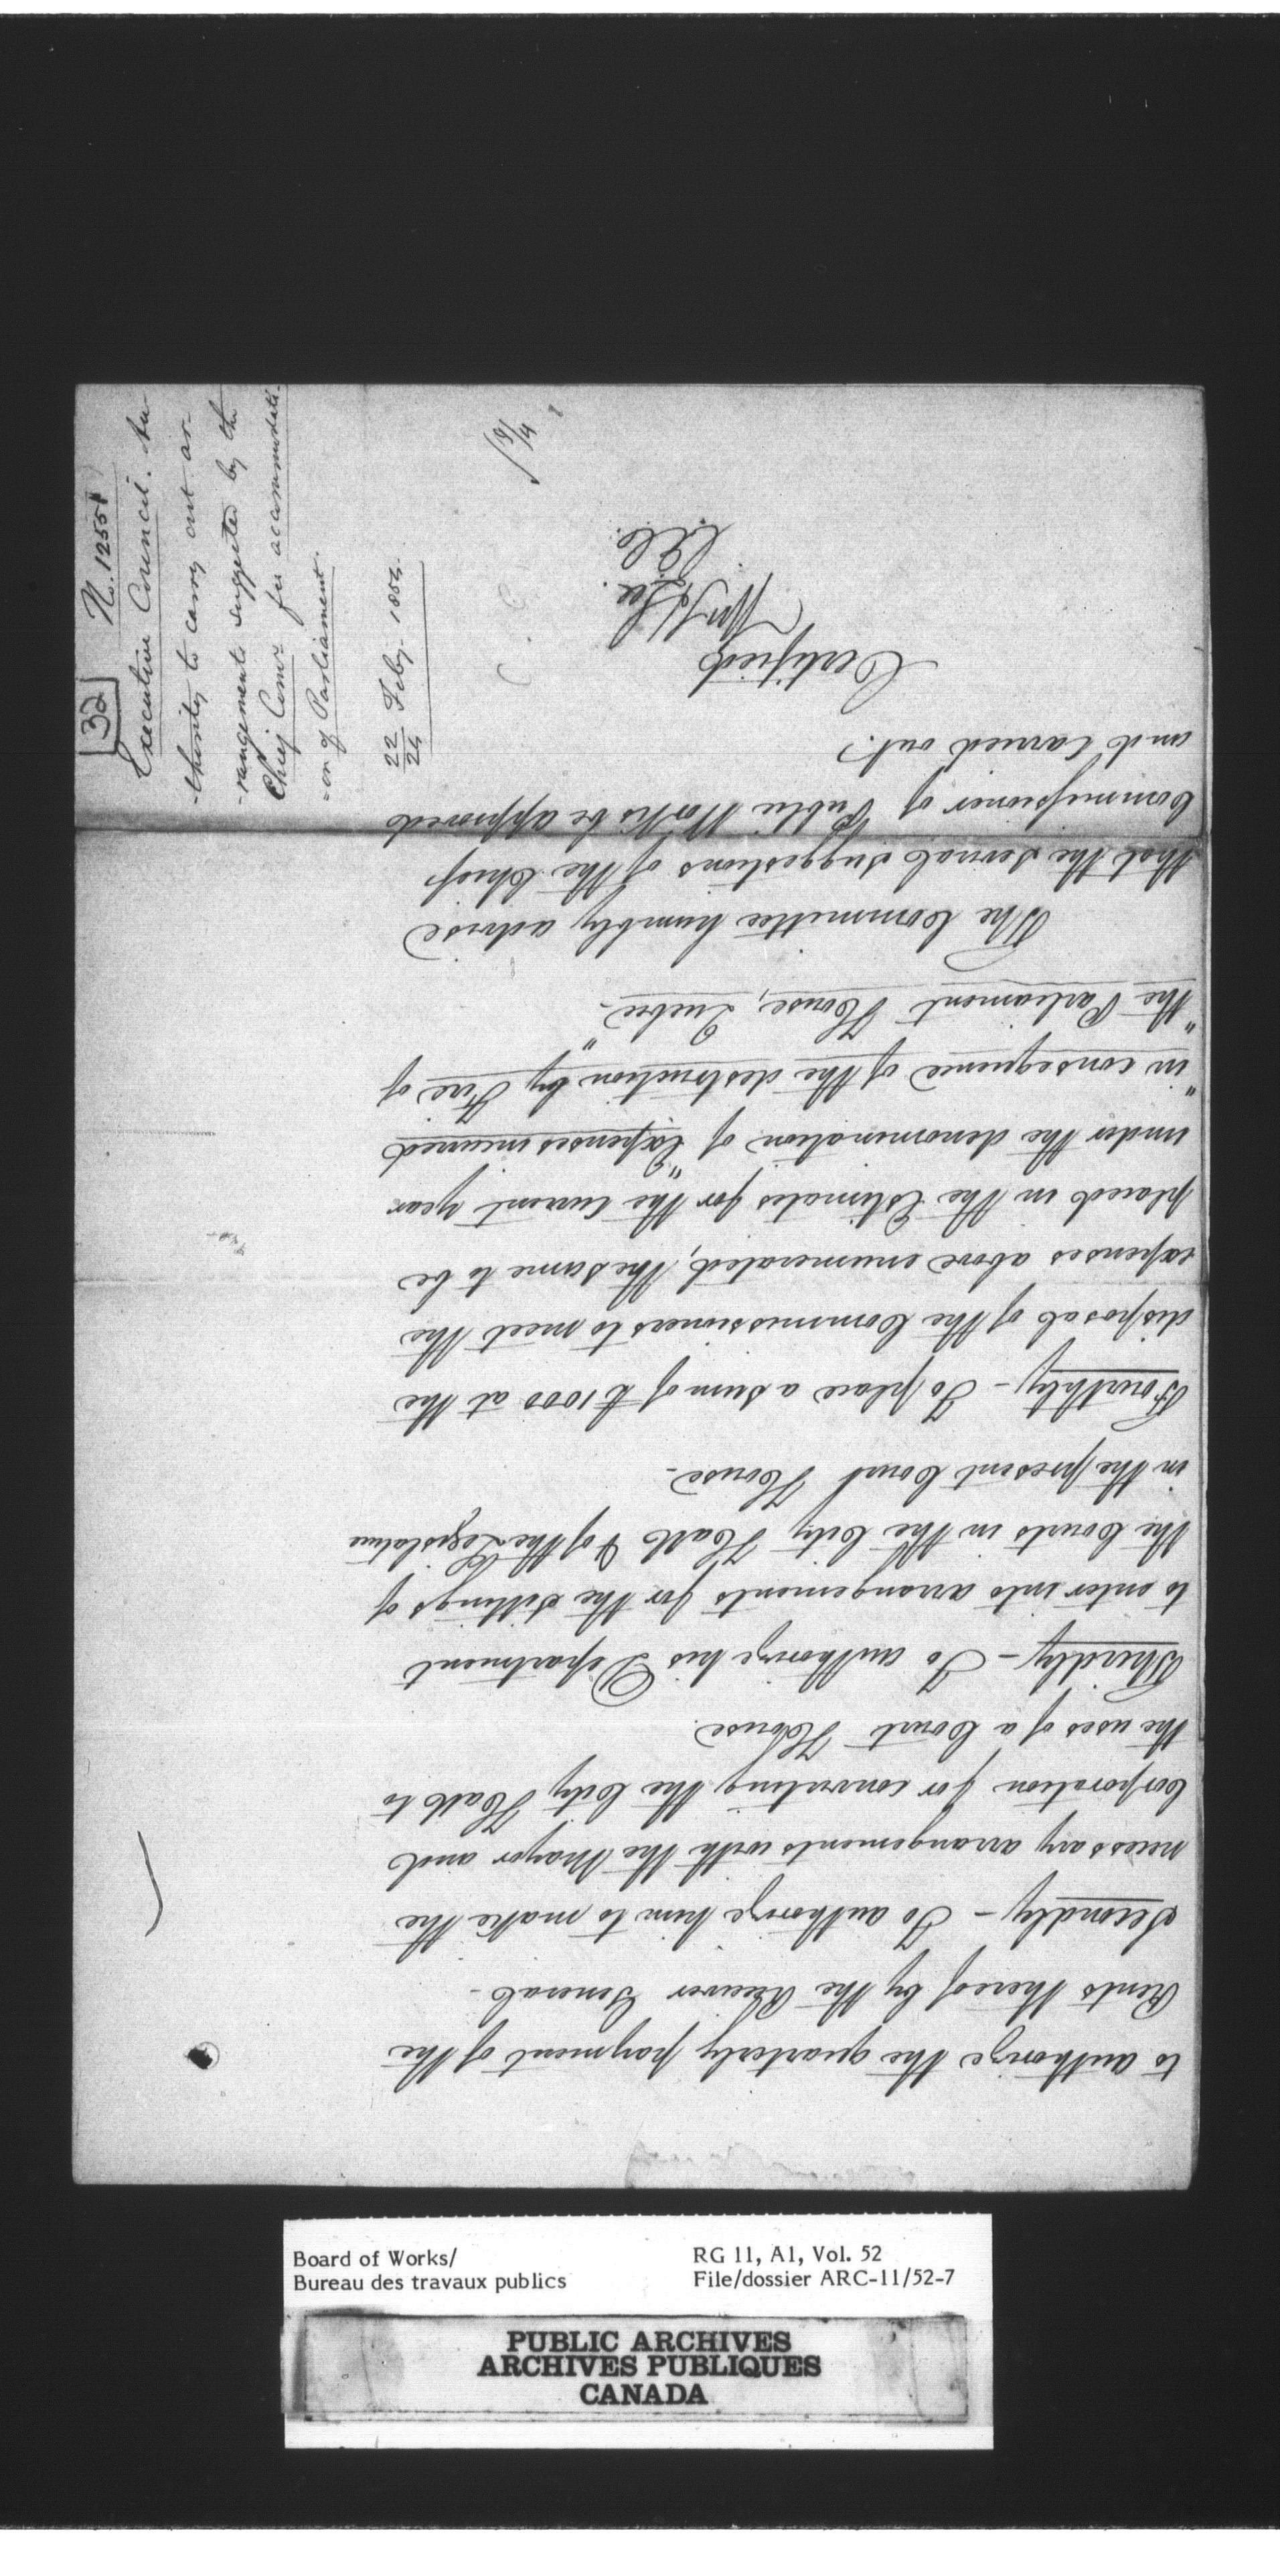 to authorize the quarterly payment of the
Rents thereof by the Receiver General.-
Secondly - To authorize him to make the
necessary arrangements with the Mayor and
Corporation for converting the City Hall to
the uses of a Court House.
Thirdly - To authorize his Department
to enter into arrangements for the sittings of
the Courts in the City Hall & of the Legislature
in the present Court House.-
Fourthly - To place a sum of £1000 at the
disposal of the Commissioners to meet the
expenses above enumerated, the same to be
placed in the Estimates for the current year
under the denomination of "Expenses incurred
"in consequence of the destruction by Fire of
"the Parliament House, Quebec."-
The Committee humbly advise
that the several suggestions of the Chief
Commissioner of Public Works be approved
and carried out.
Certified
Wm H Lee
C.E.C.
32 No. 12551
Executive Council. Au-
-thority to carry out ar-
-rangements suggested by the
Chief Comr for accommodati-
-on of Parliament.
22/24 Feby. 1854.
Board of Works/
Bureau des travaux publics
RG 11, A1, Vol. 52
File/dossier ARC-11/52-7
PUBLIC ARCHIVES
ARCHIVES PUBLIQUES
CANADA